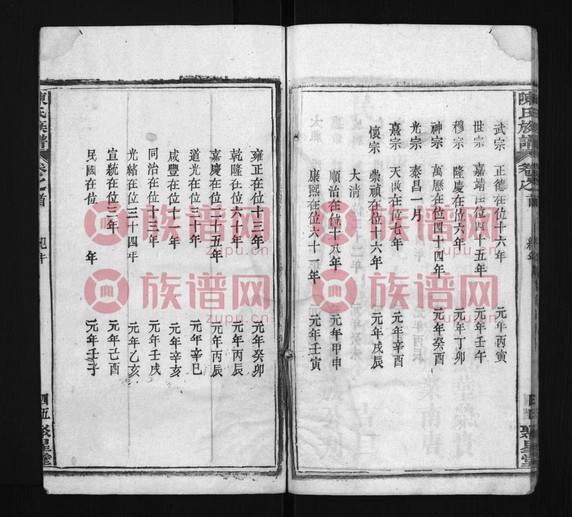 陳氏族譜 卷之首 紀年
武宗 正德在位十六年 元年丙寅
世宗 嘉靖在位四十五年 元年壬午
穆宗 隆慶在位六年 元年丁卯
神宗 萬曆在位四十四年 元年癸酉
光宗 泰昌一月
熹宗 天啟在位七年 元年辛酉
懷宗 崇禎在位十六年 元年戊辰
大清
順治在位十八年 元年甲申
康熙在位六十一年 元年壬寅
雍正在位十三年 元年癸卯
乾隆在位六十年 元年丙辰
嘉慶在位二十五年 元年丙辰
道光在位三十年 元年辛巳
咸豐在位十一年 元年辛亥
同治在位十三年 元年壬戌
光緒在位三十四年 元年乙亥
宣統在位三年 元年己酉
民國在位 年 元年壬子
陳氏族譜 卷之首 紀年 四五 聚星堂
族谱网
zupu.cn
族谱网
zupu.cn
族谱网
zupu.cn
族谱网
zupu.cn